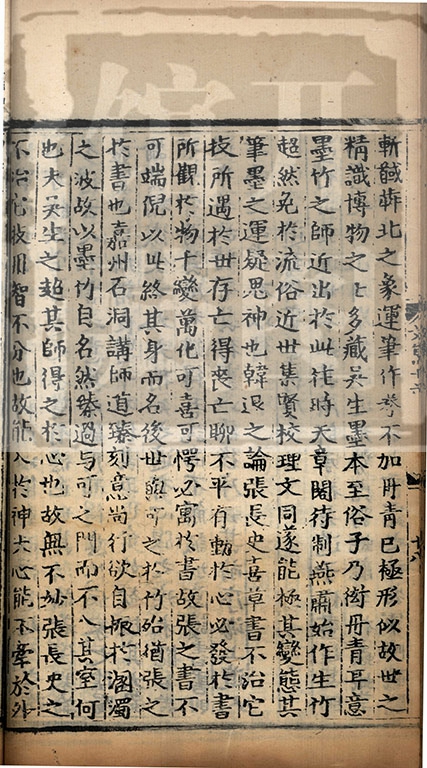 斬馘犇北之象運筆作卷不加丹青已極形似故世之
精識博物之士多藏吳生墨本至俗子乃衒丹青耳意
墨竹之師近出於此徃時天章閣待制燕肅始作生竹
超然免於流俗近世集賢校理文同遂能極其變態其
筆墨之運疑鬼神也韓退之論張長史喜草書不治它
技所遇於世存亡得喪亡聊不平有動於心必發於書
所觀於物千變萬化可喜可愕必寓於書故張之書不
可端倪以此終其身而名後世與可之於竹殆猶張之
於書也嘉州石洞講師道臻刻意尚行欲自振於溷濁
之波故以墨竹自名然臻過與可之門而不入其室何
也夫吳生之超其師得之於心也故無不妙張長史之
不治它技用智不分也故能入於神夫心能不牽於外